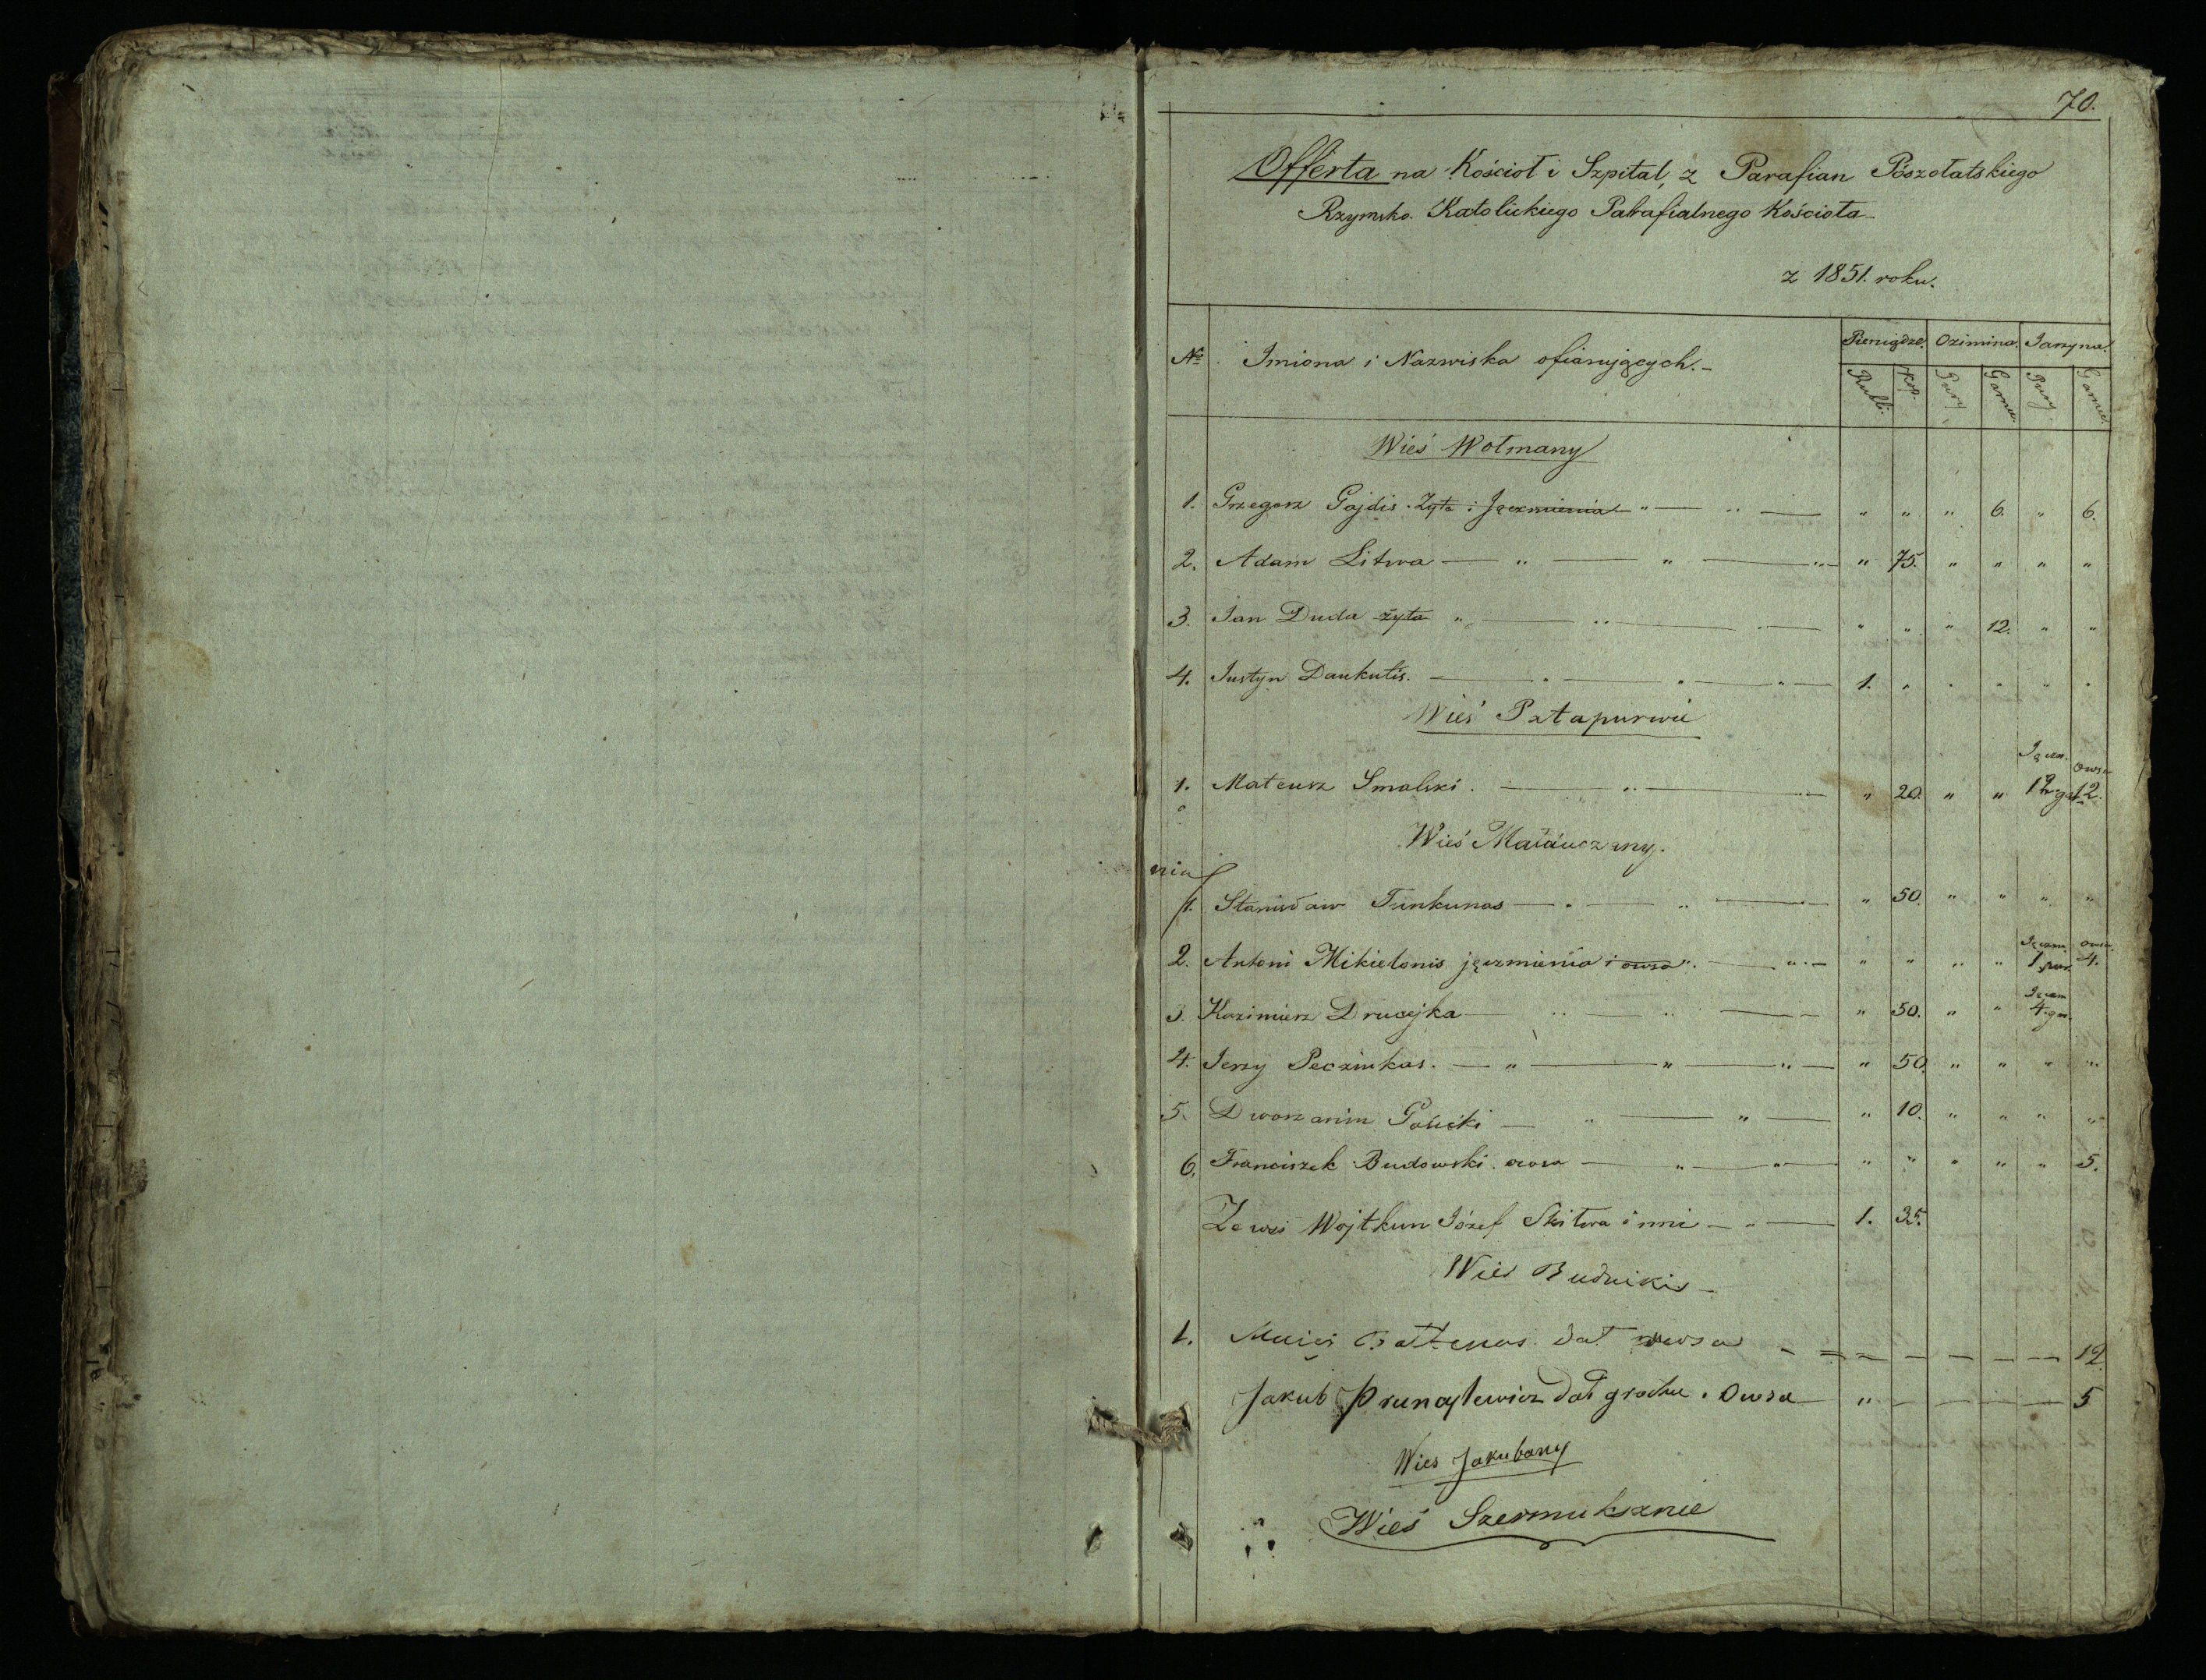 70.
Offerta na Kościoł i Szpital, z Parafian Poszołatskiego
Rzymsko Katolickiego Parafialnego Kościoła
z 1851. roku.
No Imiona i Nazwiska ofiarujących.- Pieniądze. Ozimina. Jaryna.
Rubli. Kop. Pury Garncy. Pury Garncy
Wieś Wołmany
1. Grzegorz Gajdis. Żyta i Jęczmienia " " " 6. " 6.
2. Adam Litwa " 75. " " " "
3. Jan Duda żyta " " " 12. " "
4. Justyn Daukutis. 1. " " " " "
Wieś Pałapurwie
Jęczm. Owsa
1. Mateusz Smalski. " 20. " " 12 gar 12.
Wieś Małauczany.
1. Stanisław Tunkunas " 50. " " " "
Jęczm. owsa.
2. Antoni Mikielonis jęczmienia i owsa " " " " 1 pur. 4.
Jęczm
3. Kazimierz Drucejka " 50. " " 4 gar.
4. Jerzy Peczinkas. " 50. " " " "
5. Dworzanin Gosicki " 10. " " " "
6. Franciszek Budowski. owsa " " " " " 5.
Ze wsi Wojtkun Józef Skitwa i inni 1. 35.
Wieś Budnikis
1. Maciej dał owsa 12.
Jakub dał grochu. Owsa " 5
Wies Jakubany
Wieś Szermuksznie